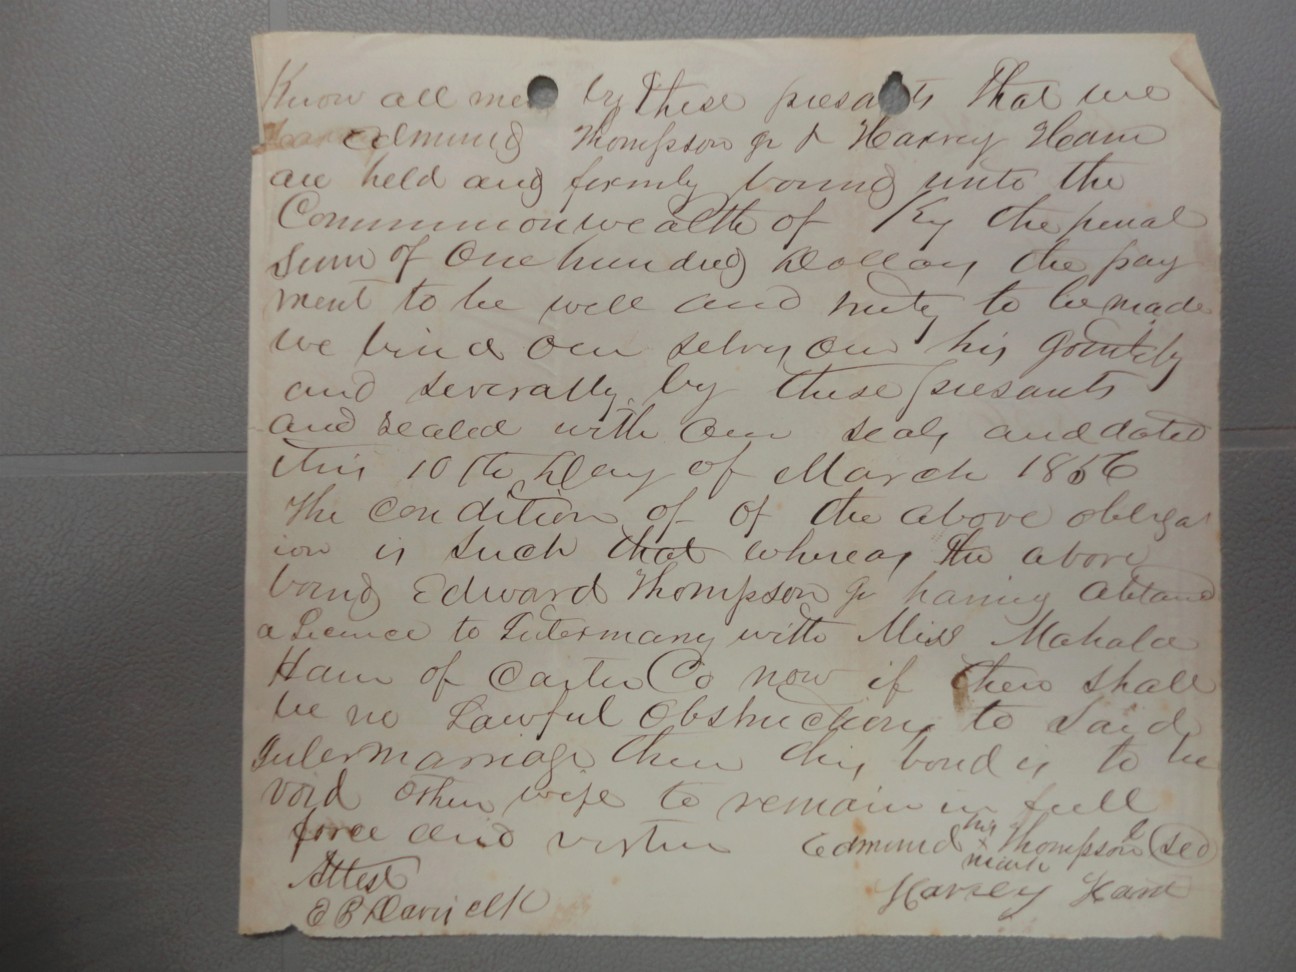 Know all men by these presants that we
Edmund Thompson jr & Harvey Ham
are held and firmly bound unto the
Commmonwealth of Ky the penal
sum of One hundred Dollars the pay
ment to be well and to be made
we bind our selvs our his
and severally by these presants
and sealed with our seals and dated
this 10th Day of March 1866
The condition of of the above obligat
ion is such that whereas the above
bound Edward Thompson jr having
a Licence to Intermarry with Miss Mahala
Ham of Carter Co now if then shall
be no Lawful Obstructions to said
Intermarriage then this bond is to be
void other wise to remain in full
force and virtue Edmund his x mark Thompson Jr
Attest Harvey Ham
E B Davis clk